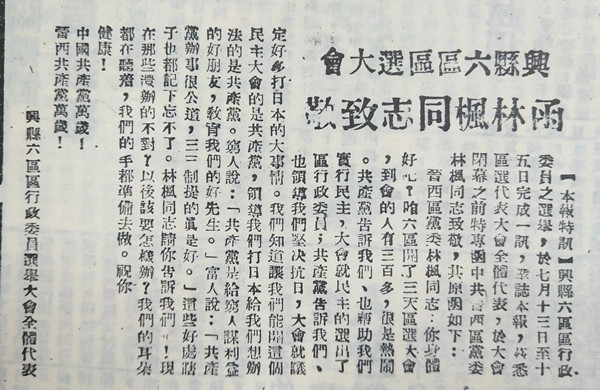 興縣六區區選大會
函林楓同志致敬
【本報特訊】興縣六區區行政
委員之選舉,於七月十三日至十
五日完成一訊,業誌本報,茲悉
區選代表大會全體代表,於大會
閉幕之前特專函中共晋西區黨委
林楓同志致敬,其原函如下:
晋西區黨委林楓同志:你身體
好吧?咱六區開了三天區選大會
,到會的人有三百多,很是熱鬧
。共產黨告訴我們、也幫助我們
實行民主,大會就民主的選出了
區行政委員;共產黨告訴我們、
也領導我們堅決抗日,大會就議
定好多打日本的大事情。我們知道讓我們能開這個
民主大會的是共產黨,領導我們打日本給我們想辦
法的是共產黨。窮人說:「共產黨是給窮人謀利益
的好朋友,教育我們的好先生。」富人說:「共產
黨辦事很公道,三三制提的真是好。」這些好處瞎
子也都記下忘不了。林楓同志請你告訴我們!現
在那些辦的不對?以後該要怎樣辦?我們的耳朵
都在聽着,我們的手都準備去做。祝你
健康!
中國共產黨萬歲!
晋西共產黨萬歲!
興縣六區區行政委員選舉大會全體代表